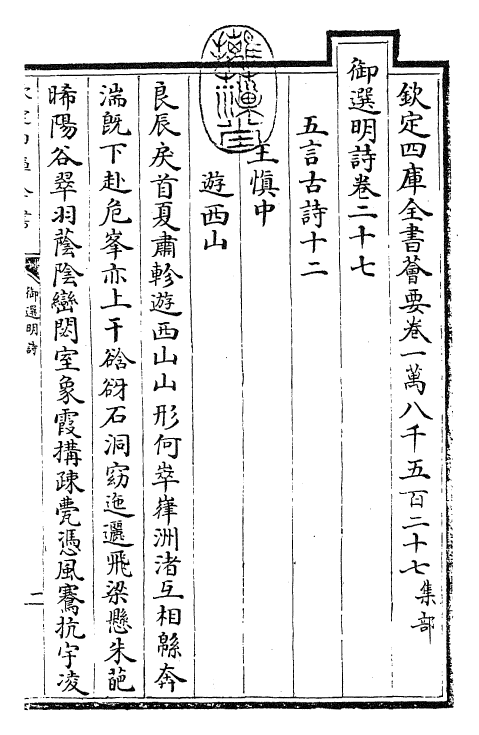 欽定四庫全書薈要卷一萬八千五百二十七集部
御選明詩卷二十七
五言古詩十二
王慎中
遊西山
良辰戾首夏肅軫遊西山山形何崒嵂洲渚互相緜奔
湍旣下赴危峯亦上干谽谺石洞窈迤邐飛梁懸朱葩
晞陽谷翠羽蔭陰巒閟室象霞搆疎甍憑風騫抗宇凌
御選明詩